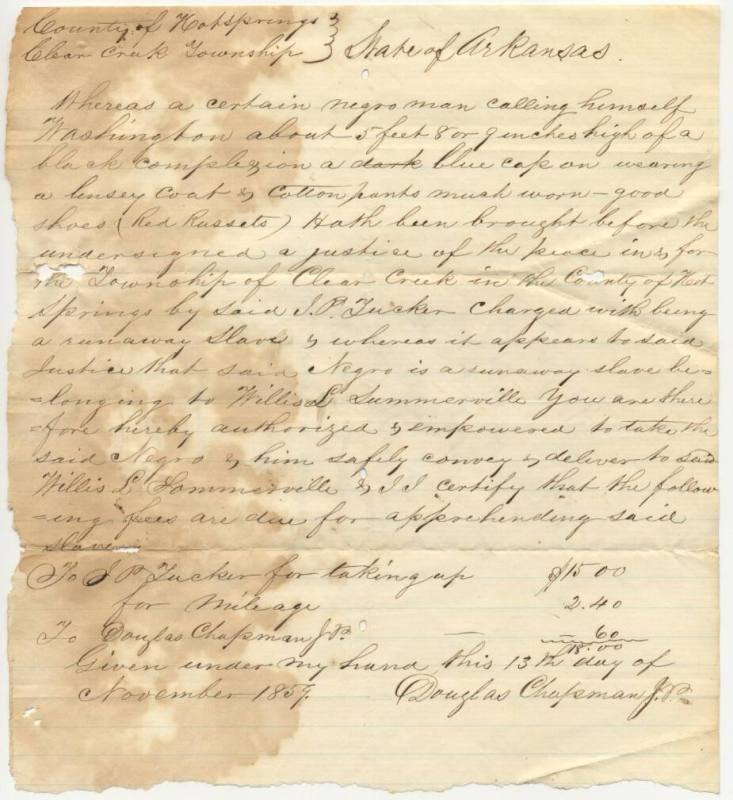 County of Hotsprings }
Clear Creek Township } State of Arkansas.
Whereas a certain negro man calling himself
Washington about 5 feet 8 or 9 inches high of a
black complexion a dark blue cap on wearing
a linsey coat & cotton pants much worn – good
shoes (Red Russets) Hath been brought before the
undersigned a justice of the peace in & for
the Township of Clear Creek in the County of Hot
Springs by said J. P. Tucker charged with being
a runaway slave & whereas it appears to said
Justice that said Negro is a runaway slave be=
=longing to Willis L Summerville You are there
=fore hereby authorized & empowered to take the
said Negro & him safely convey & deliver to said
Willis L Sommerville & I I certify that the follow
=ing fees are due for apprehending said
slave
To J P Tucker for taking up $15 00
for mileage 2.40
To Douglas Chapman J.P. — 60
18.00
Given under my hand this 13th day of
November 1859. Douglas Chapman J.P.